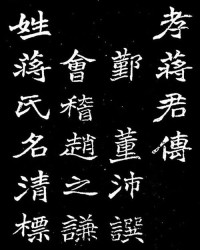 孝蔣君傳
鄞董沛譔
會稽趙之謙
姓蔣氏名清標